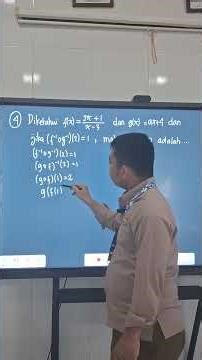 ④ Diketahui f(x) = 2x + 1 / x - 3 dan g(x) = ax + 4 dan
jika (f⁻¹ o g⁻¹)(2) = 1, adalah ...
(f⁻¹ o g⁻¹)(2) = 1
(g o f)⁻¹(2) = 1
(g o f)(1) = 2
g(f(1)